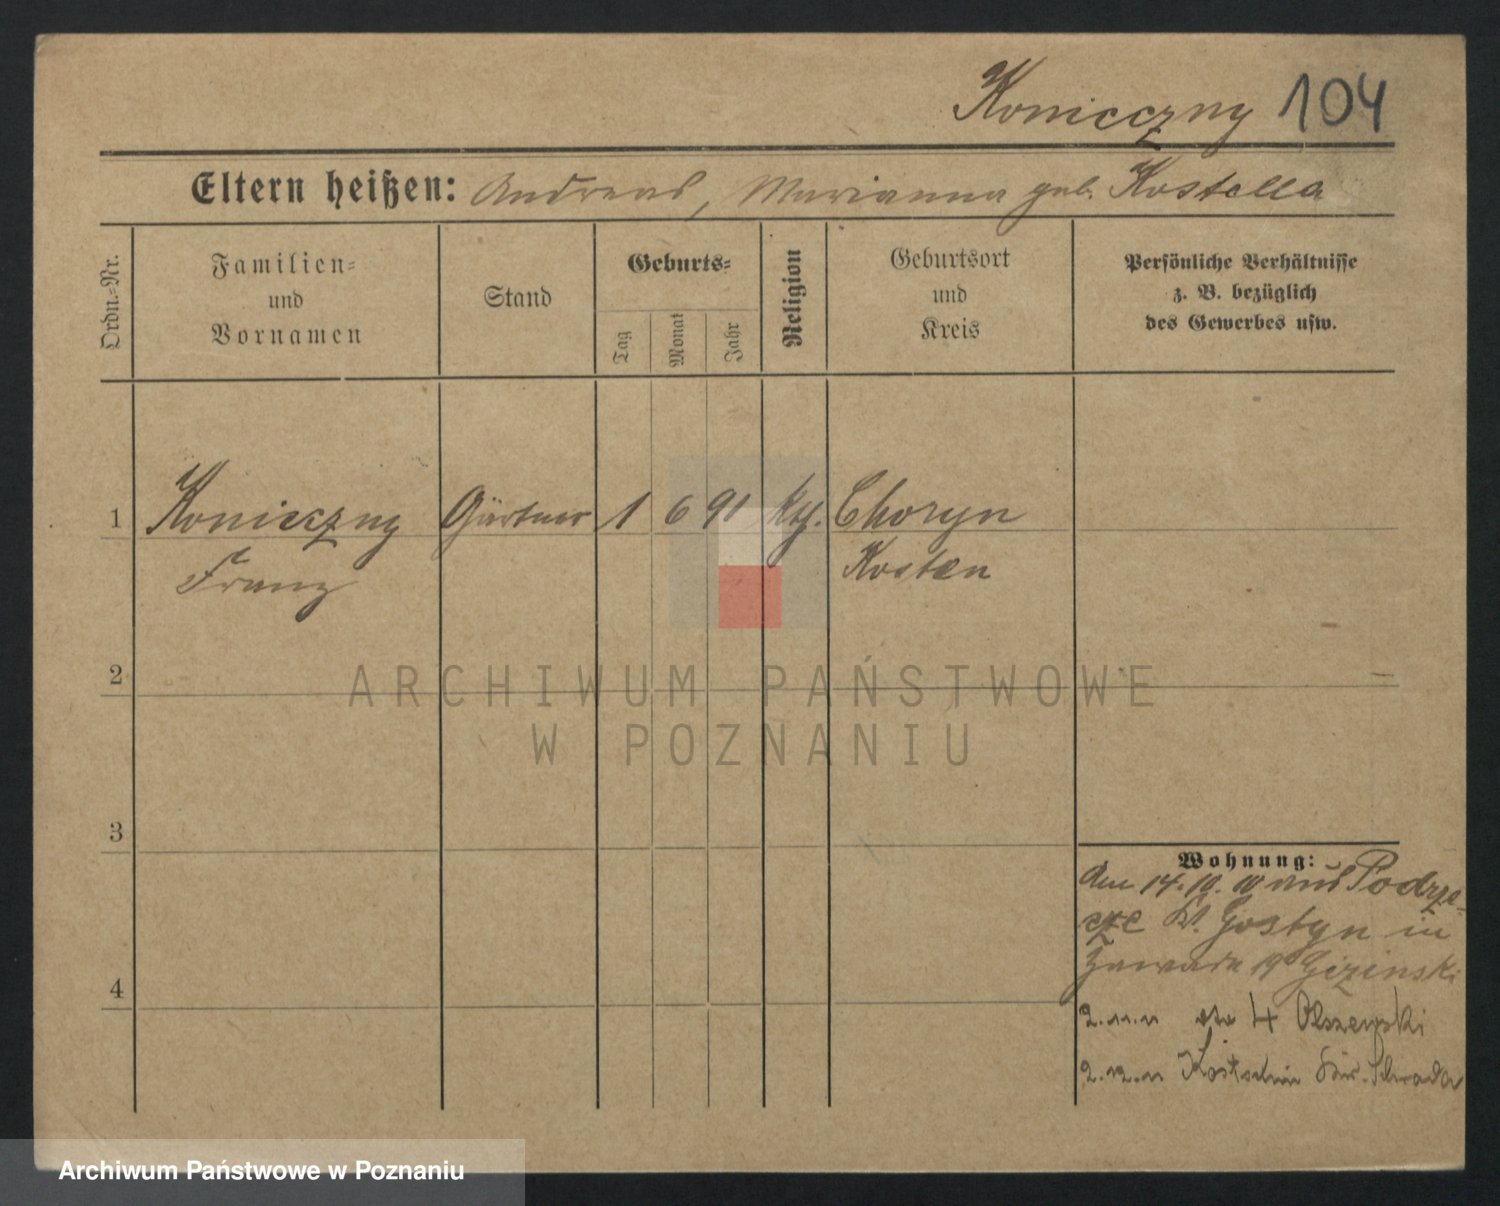 Koniczny 104
Eltern heißen: Andreas, Marianna geb. Kostella
Ordn.-Nr.
Familien-
und
Vornamen
Stand
Geburts-
Tag
Monat
Jahr
Religion
Geburtsort
und
Kreis
Persönliche Verhältnisse
z. B. bezüglich
des Gewerbes usw.
1 Koniczny Gärtner 1 6 91 Choryn
Franz Kosten
2
ARCHIWUM PAŃSTWOWE
W POZNANIU
3
Wohnung:
den 14. 10. 10 aus Podrze-
cze Kr. Gostyn in
Zawade 19
4
2.11.11 4 Olszewski
2.12.11 Kostschin
Archiwum Państwowe w Poznaniu